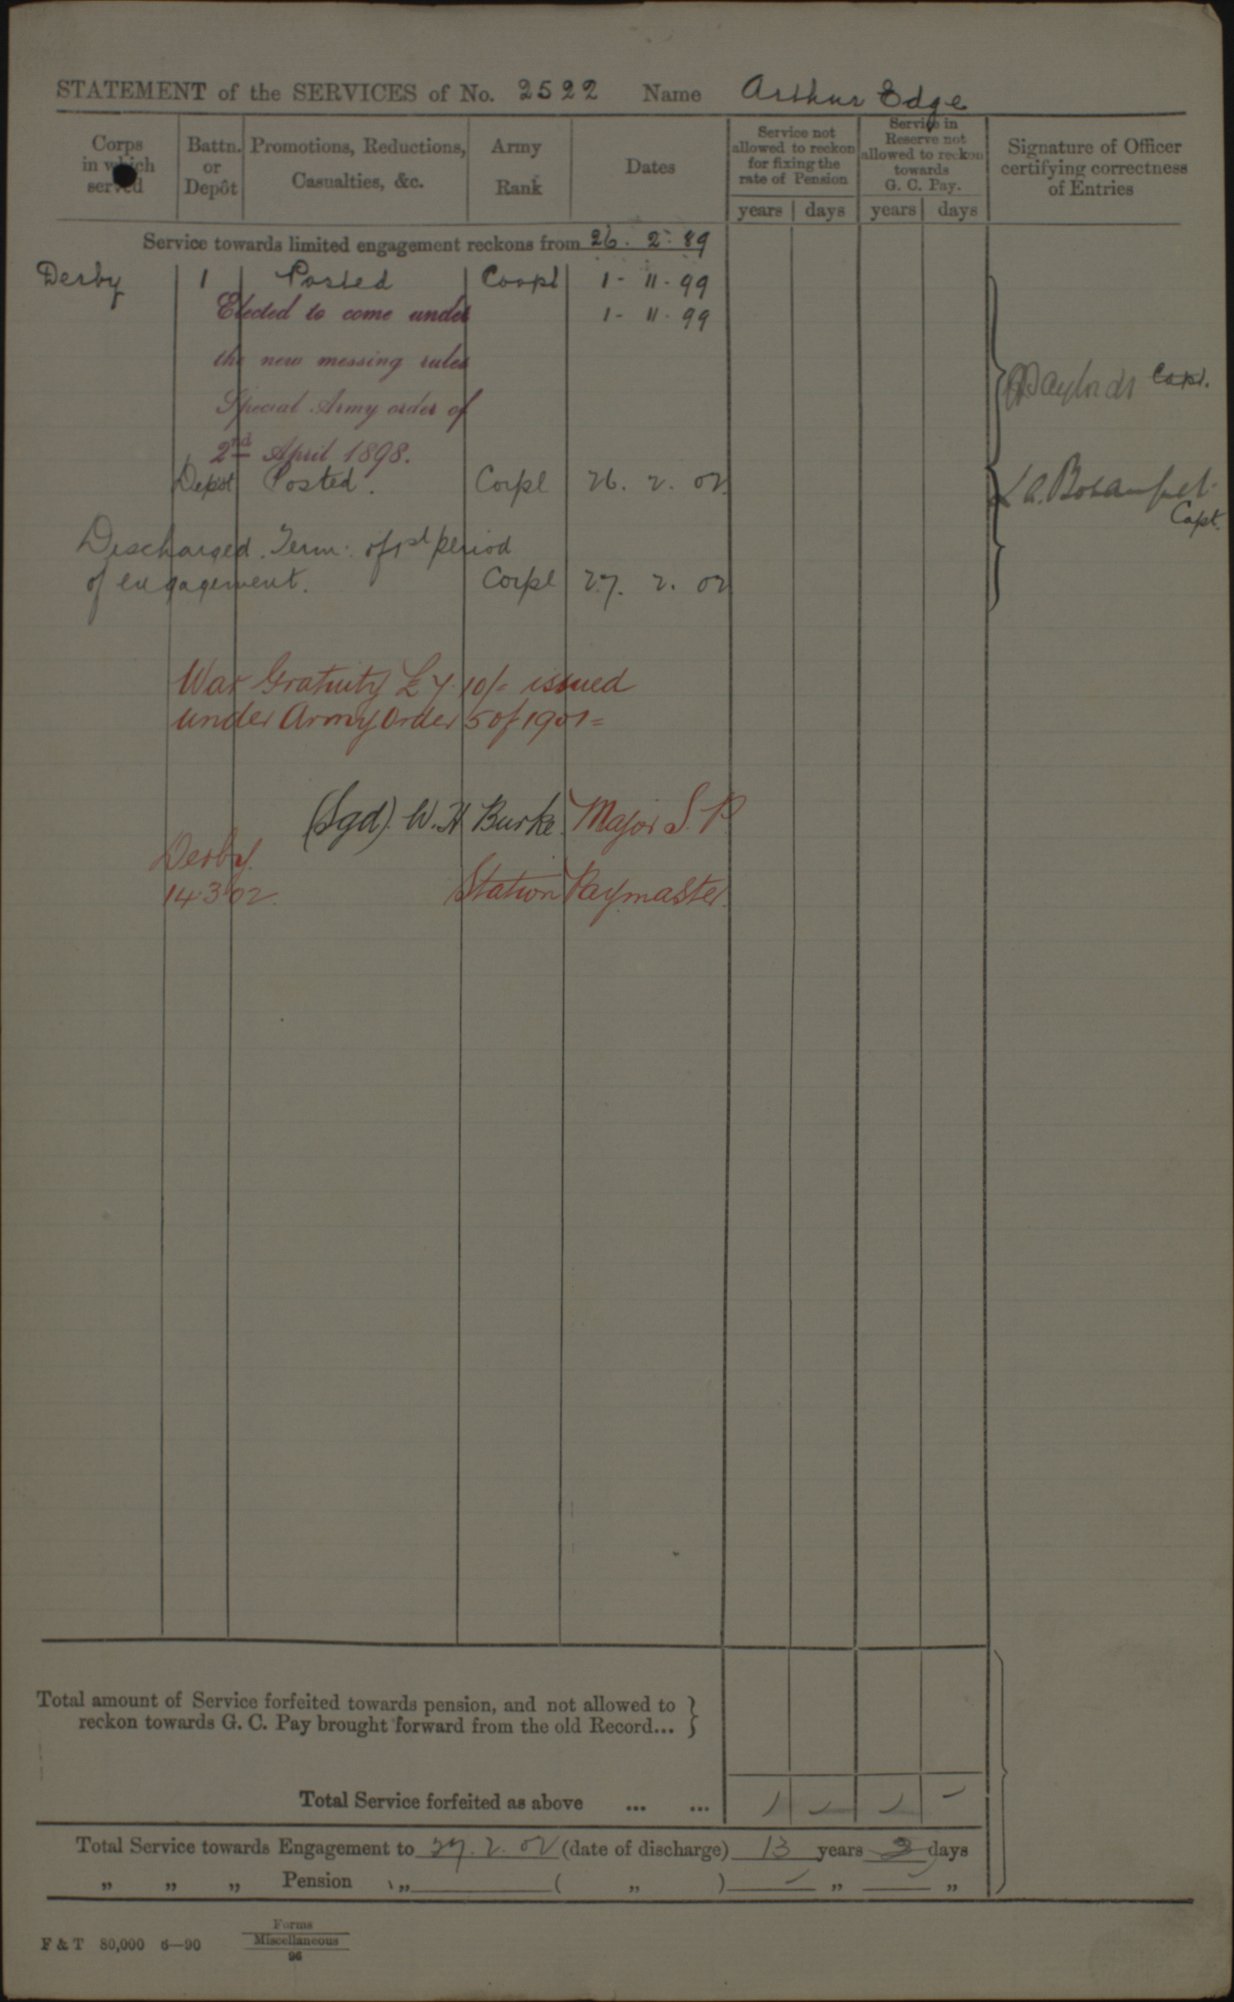 STATEMENT of the SERVICES of No. 2522 Name Arthur Edge
Corps in which served
Battn. or Depôt
Promotions, Reductions, Casualties, &c.
Army Rank
Dates
Service not allowed to reckon for fixing the rate of Pension
Service in Reserve not allowed to reckon towards G. C. Pay.
Signature of Officer certifying correctness of Entries
years days years days
Service towards limited engagement reckons from 26. 2. 89
Derby 1 Posted Corpl 1 - 11 - 99
Elected to come under 1 - 11 - 99
the new messing rules
Special Army order of
2nd April 1898.
Capt.
Depôt Posted. Corpl 26. 2. 02
Capt.
Discharged. Term: of 1st period
of engagement. Corpl 27. 2. 02
War Gratuity £7.10/- issued
under Army Order 5 of 1901=
(Sgd). W. H Burke. Major S. P.
Derby.
14.3.02. Station Paymaster.
Total amount of Service forfeited towards pension, and not allowed to
reckon towards G. C. Pay brought forward from the old Record... }
Total Service forfeited as above ... ...
Total Service towards Engagement to 27. 2. 02 (date of discharge) 13 years 2 days
„ „ „ Pension „ ( „ ) „ „
F & T 80,000 6—90
Forms
Miscellaneous
96